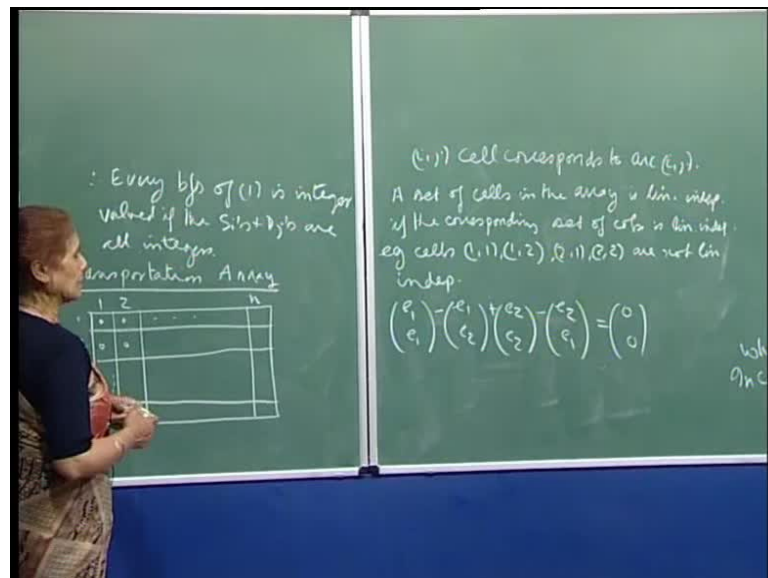 ∴ Every bfs of (1) is integer
valued if the Si's + Dj's are
all integers.
ansportation Array
1 2 n
(i,j) cell corresponds to arc (i,j).
A set of cells in the array is lin. indep.
if the corresponding set of cols is lin indep.
eg cells (1,1), (1,2), (2,1), (2,2) are not lin
indep.
(e1 e1) - (e1 e2) + (e2 e2) - (e2 e1) = (0 0)